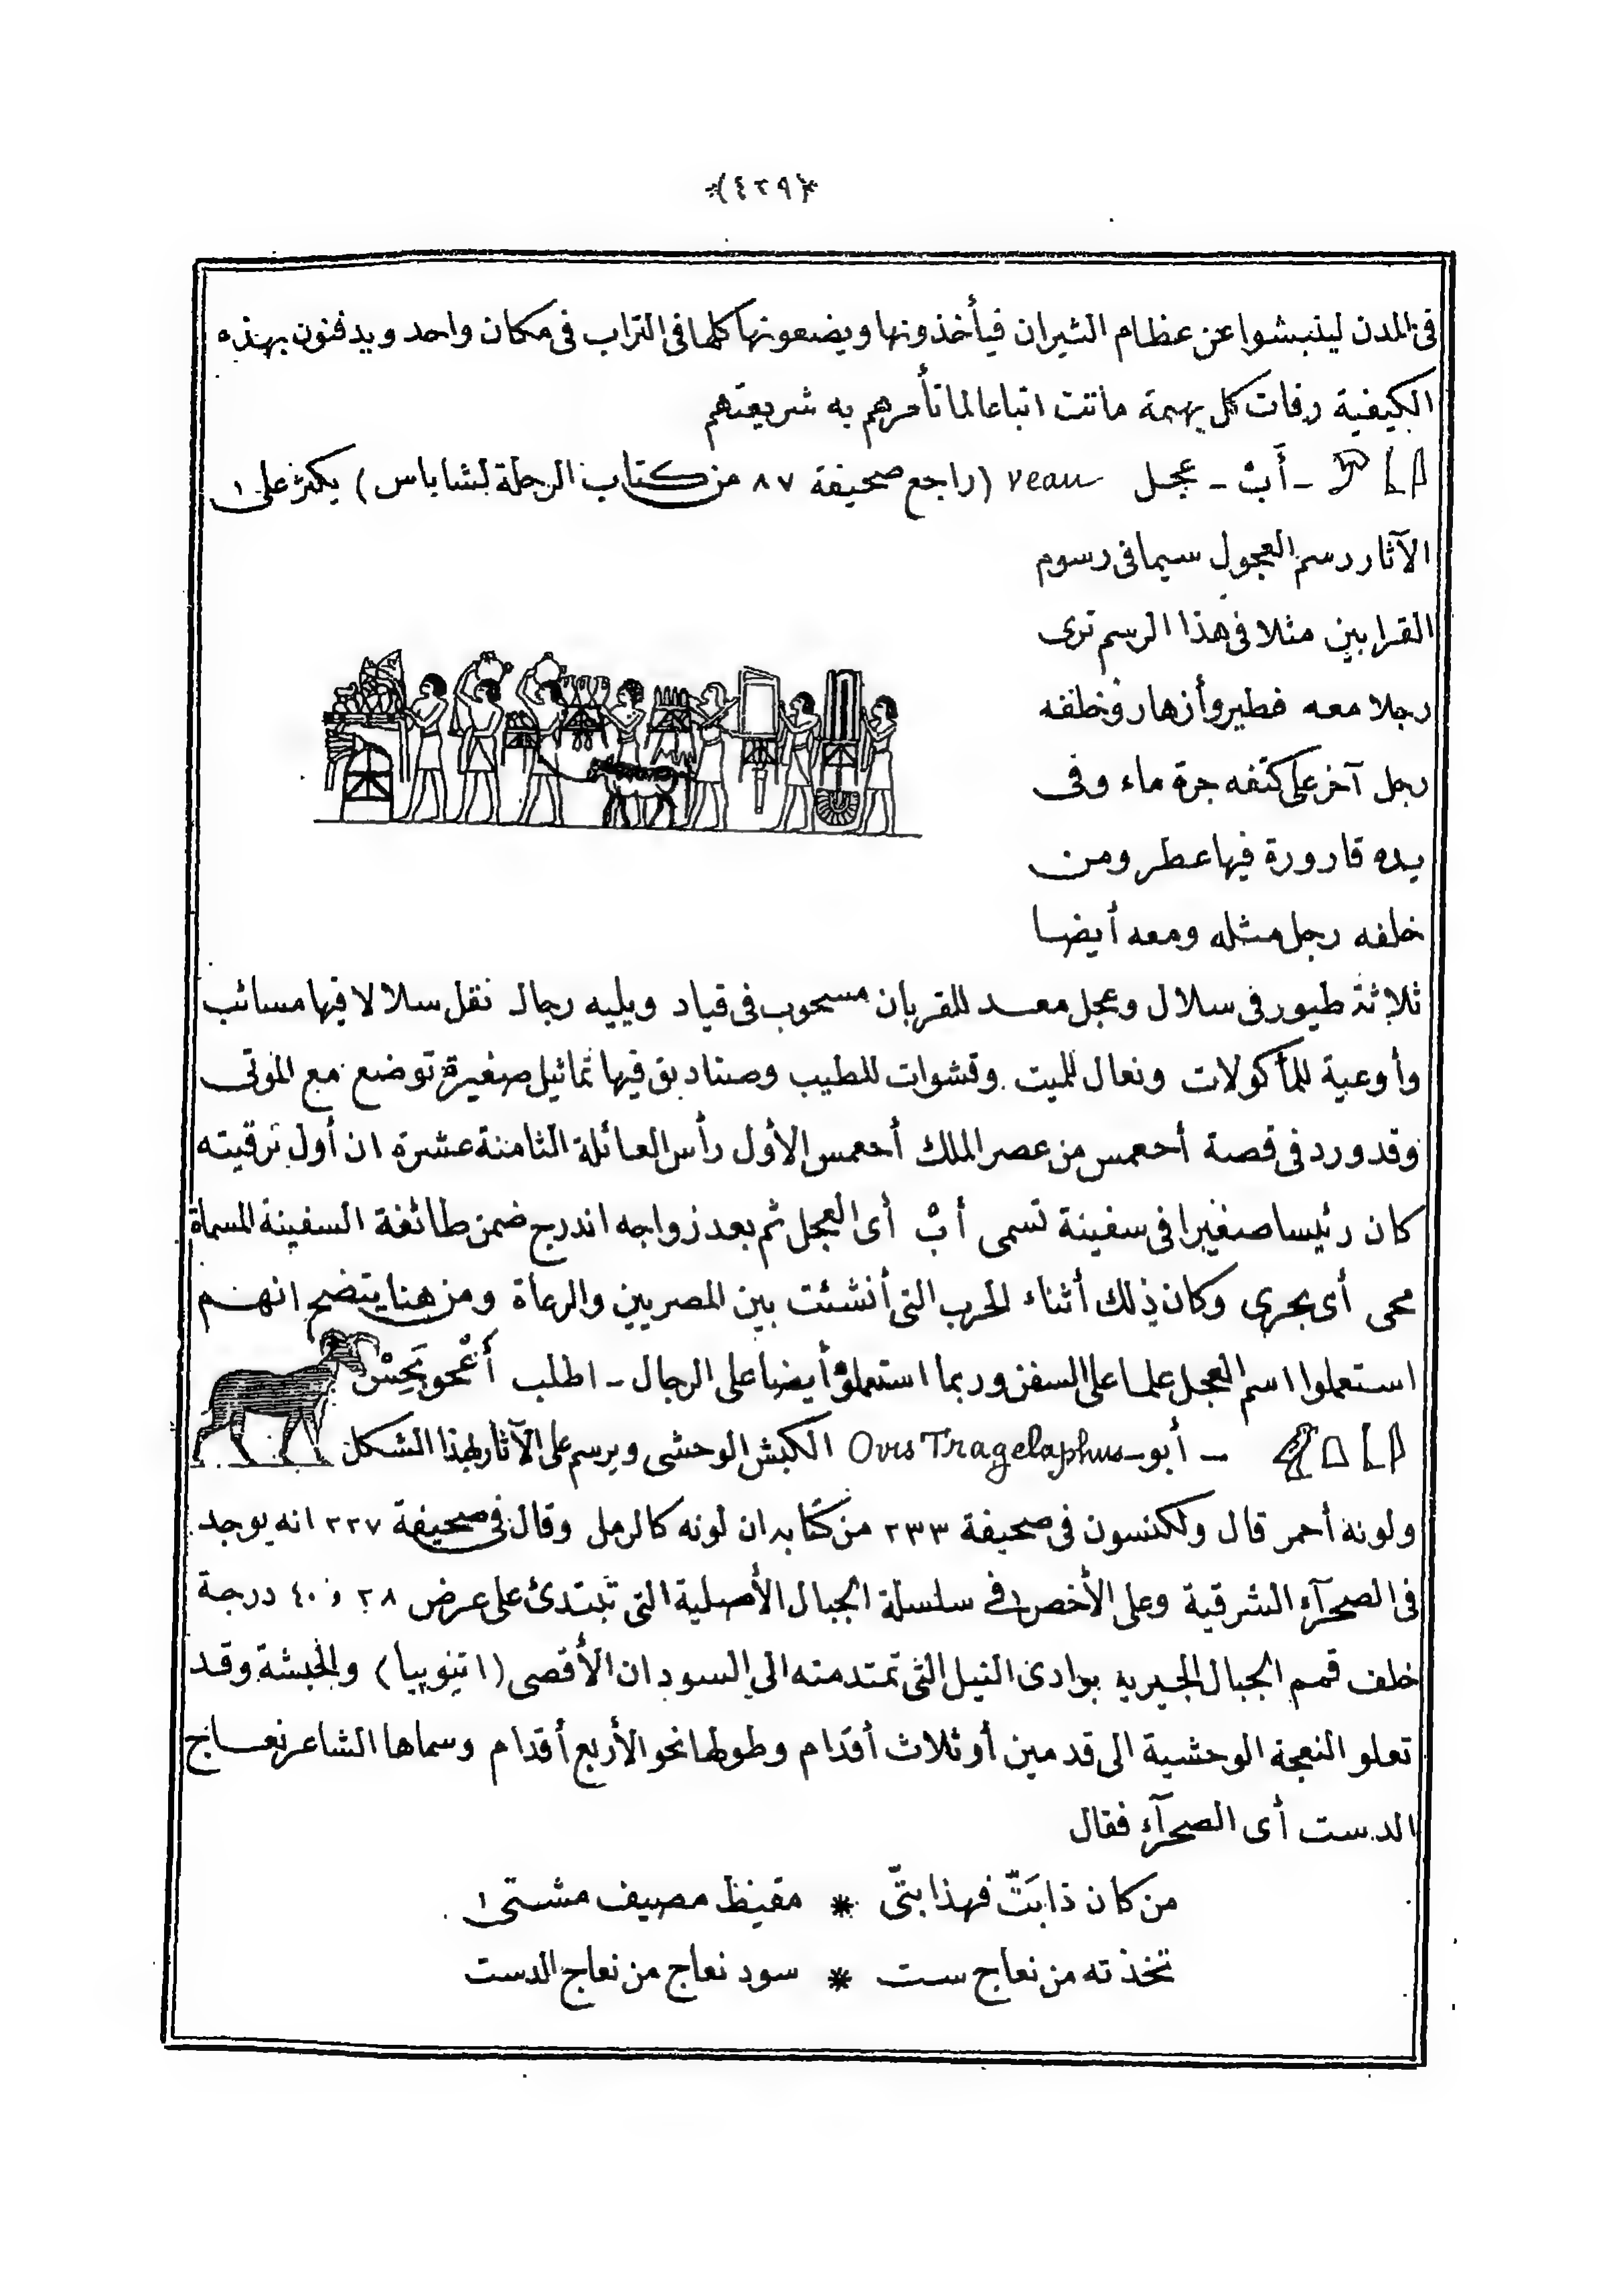 ﴿٤٢٩﴾
فى المدن لينبشوا عن عظام الثيران فيأخذونها ويضعونها كلها فى التراب فى مكان واحد ويدفنون بهذه
الكيفية رفات كل بهيمة ماتت اتباعا لما تأمرهم به شريعتهم
ـ أَبْ ـ عجل veau (راجع صحيفة ٨٧ من كتاب الرحلة لشاباس) يكثر على
الآثار رسم العجول سيما فى رسوم
القرابين مثلا فى هذا الرسم ترى
رجلا معه فطير وأزهار وخلفه
رجل آخر على كتفه جرة ماء وفى
يده قارورة فيها عطر ومن
خلفه رجل مثله ومعه أيضا
ثلاثة طيور فى سلال وعجل معد للقربان مسحوب فى قياد ويليه رجال نقل سلالا فيها مسائب
وأوعية للمأكولات ونعال للميت وقشوات للطيب وصناديق فيها تماثيل صغيرة توضع مع الموتى
وقد ورد فى قصة أحعمس من عصر الملك أحعمس الأول رأس العائلة الثامنة عشرة ان أول ترقيته
كان رئيسا صغيرا فى سفينة تسمى أبْ أى العجل ثم بعد زواجه اندرج ضمن طائفة السفينة المسماة
محى أى بحرى وكان ذلك أثناء الحرب التى أنشئت بين المصريين والرعاة ومن هنا يتضح انهم
استعملوا اسم العجل علما على السفن وربما استعملوه أيضا على الرجال ـ اطلب
ـ أبو ـ Ovis Tragelaphus الكبش الوحشى ويرسم على الآثار بهذا الشكل
ولونه أحمر قال ولكنسون فى صحيفة ٢٣٣ من كتابه ان لونه كالرمل وقال فى صحيفة ٢٢٧ انه يوجد
فى الصحرآء الشرقية وعلى الأخص فى سلسلة الجبال الأصلية التى تبتدئ على عرض ٢٨ و ٤٠ درجة
خلف قمم الجبال الجيرية بوادى النيل التى تمتد منه الى السودان الأقصى (اتيوپيا) والحبشة وقد
تعلو النعجة الوحشية الى قدمين أو ثلاث أقدام وطولها نحو الأربع أقدام وسماها الشاعر نعاج
الدست أى الصحرآء فقال
من كان ذا بَتّ فهذا بتّى * مقيظ مصيف مشتى
تخذته من نعاج ست * سود نعاج من نعاج الدست